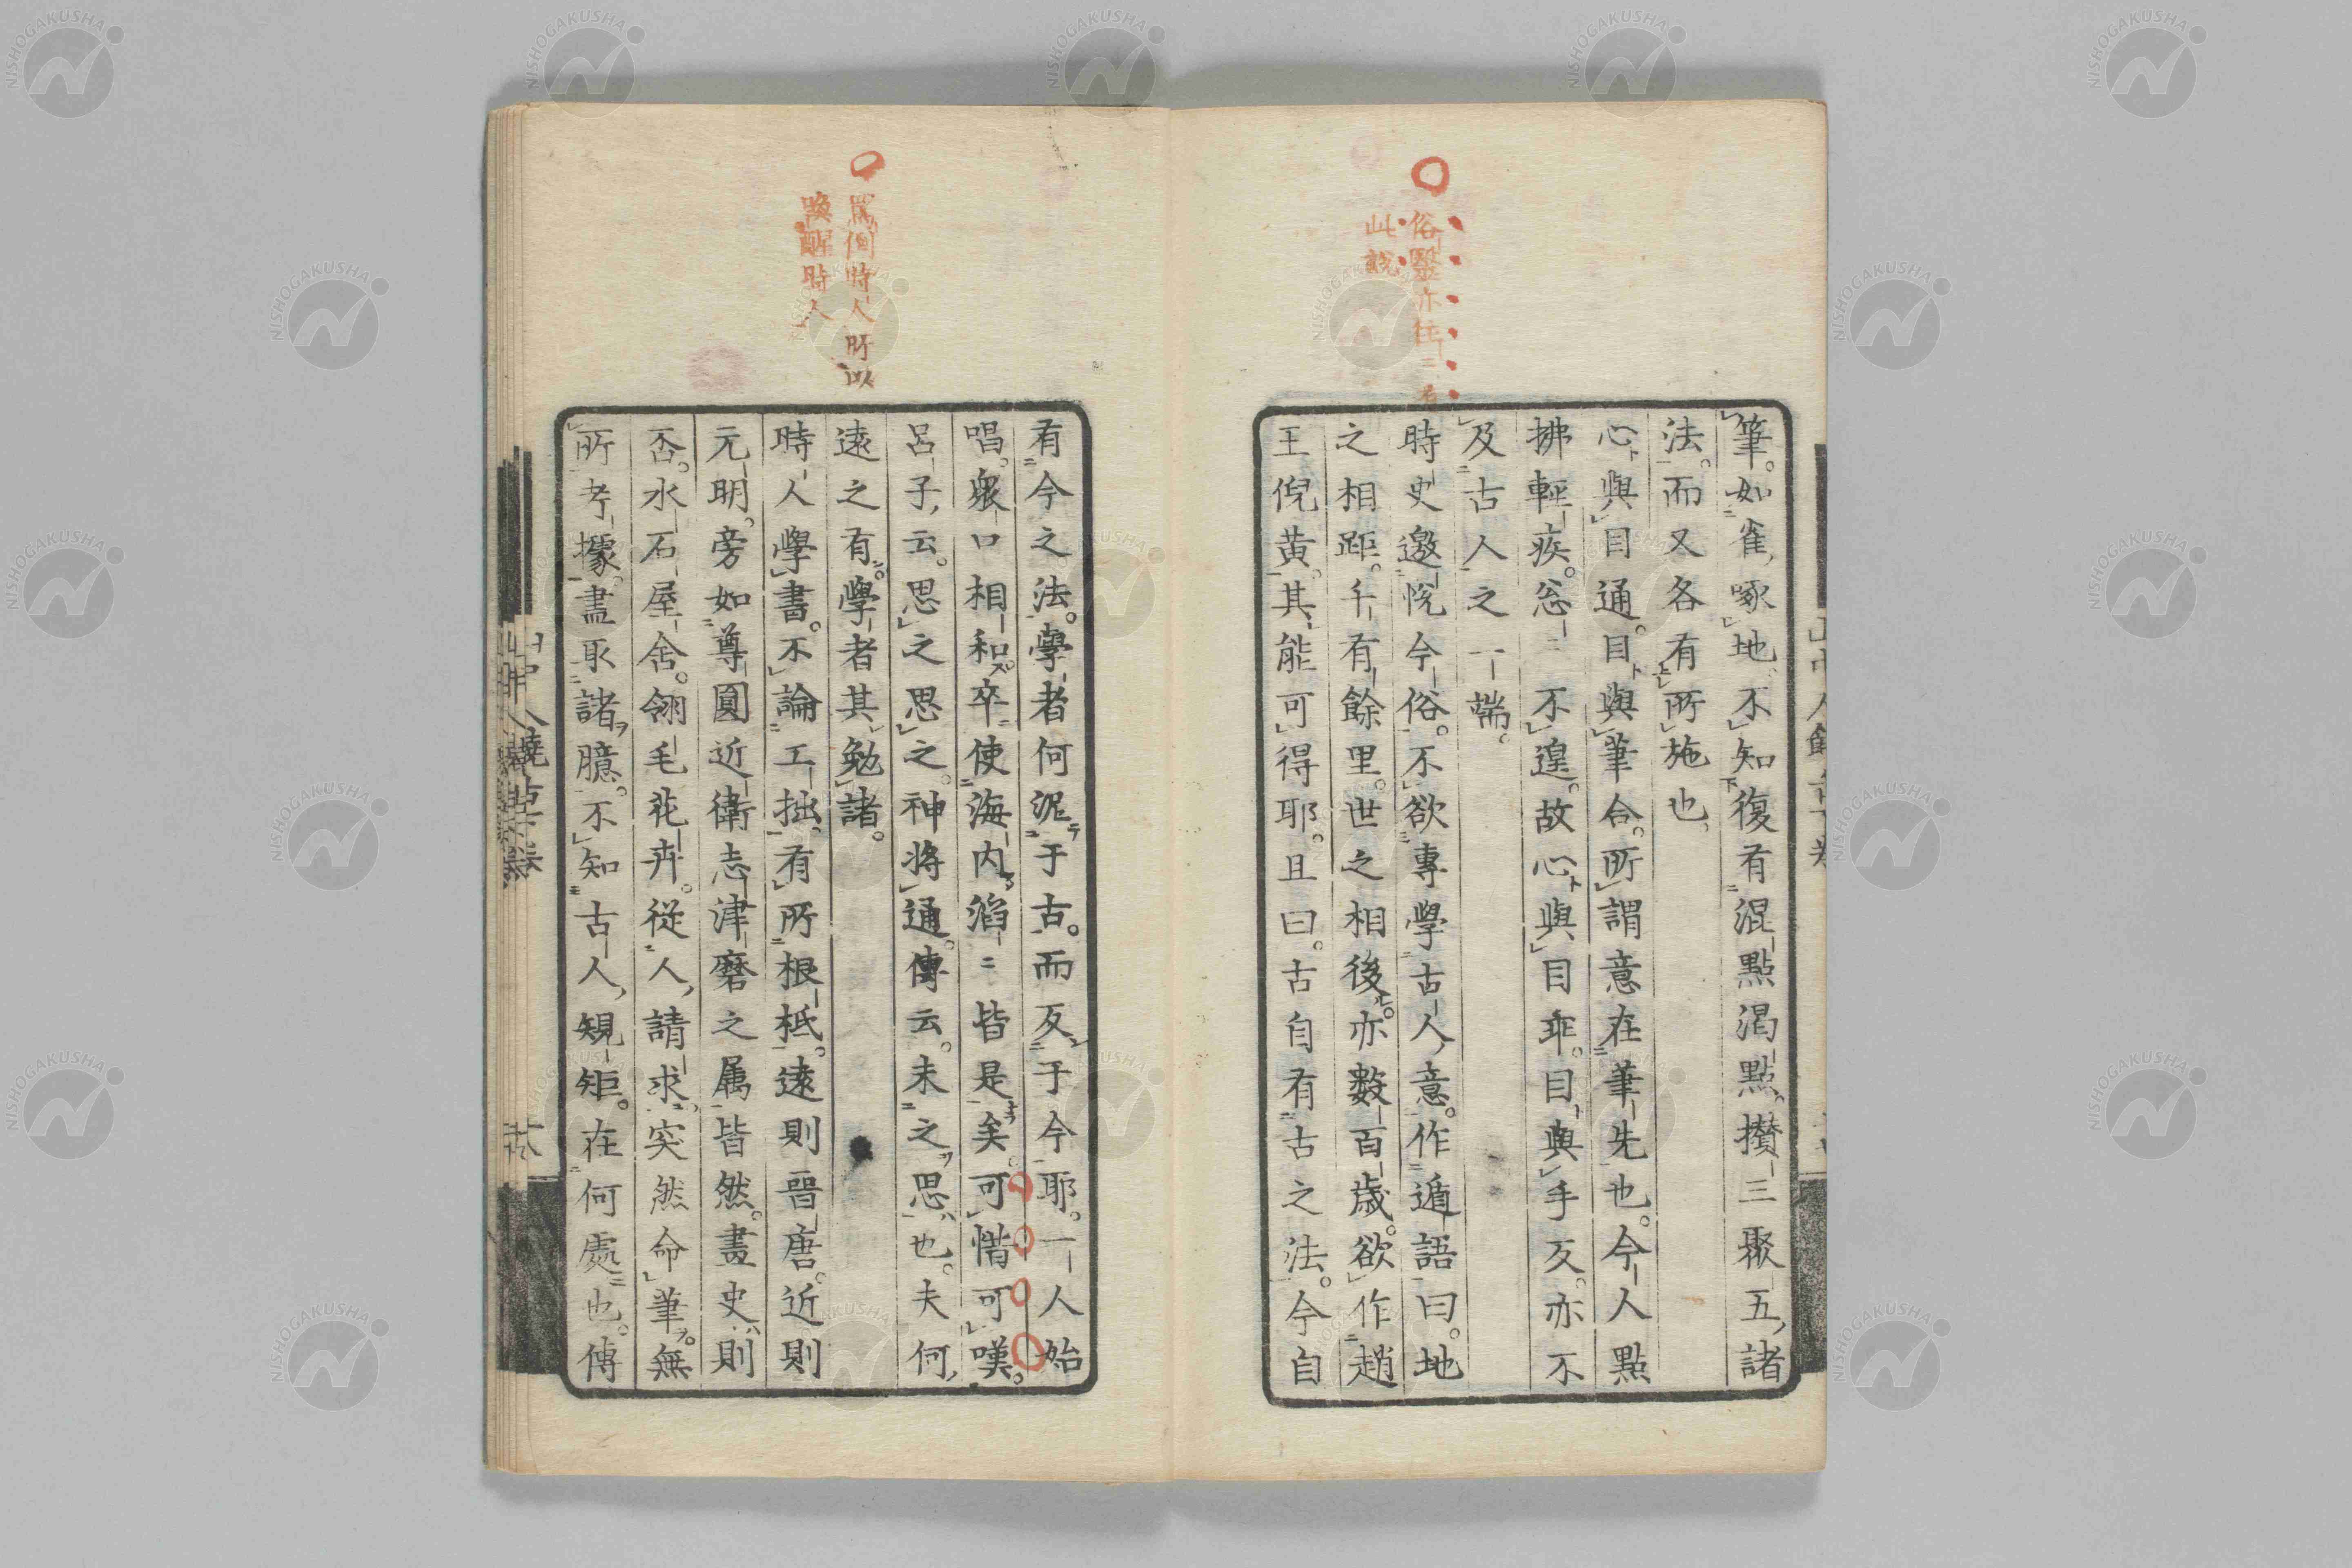 俗醫亦往々有
此説
筆。如雀啄地、不知復有混點渴點、攢三聚五、諸
法。而又各有所施也、
心與目通。目與筆合。所謂意在筆先也。今人點
拂輕疾。忩〻不遑。故心與目乖。目與手反。亦不
及古人之一端。
時史邀悅今俗。不欲專學古人意。作遁語曰。地
之相距。千有餘里。世之相後。亦數百歲。欲作趙
王倪黄。其能可得耶。且曰。古自有古之法。今自
罵倒時人所以
喚醒時人
有今之法。學者何泥于古。而反于今耶。一人始
唱。衆口相和。卒使海内滔〻皆是矣。可惜可嘆。
呂子云。思之思之。神將通。傳云。未之思也。夫何
遠之有。學者其勉諸。
時人學書。不論工拙。有所根柢。遠則晉唐。近則
元明。旁如尊圓近衛志津磨之屬皆然。畫史則
否。水石屋舍。翎毛花卉。從人請求。突然命筆。無
所考據。盡取諸臆。不知古人規矩。在何處也。傳
NISHOGAKUSHA